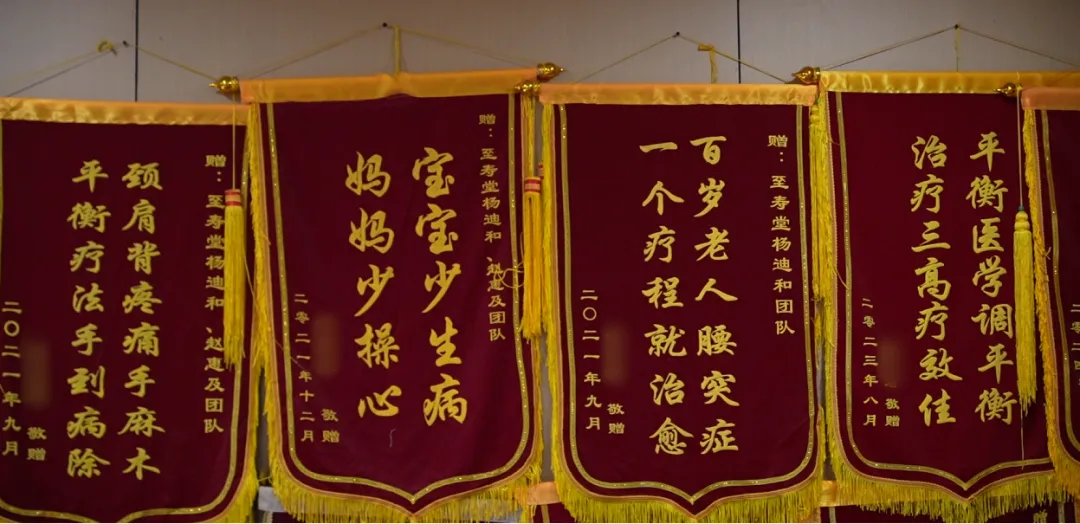 赠：至寿堂杨迪和、赵惠及团队
颈肩背疼痛手麻木
平衡疗法手到病除
敬赠
二〇二一年九月
赠：至寿堂杨迪和、赵惠及团队
宝宝少生病
妈妈少操心
敬赠
二零二一年十二月
赠：至寿堂杨迪和团队
百岁老人腰突症
一个疗程就治愈
敬赠
二〇二一年九月
平衡医学调平衡
治疗三高疗效佳
敬赠
二零二三年八月